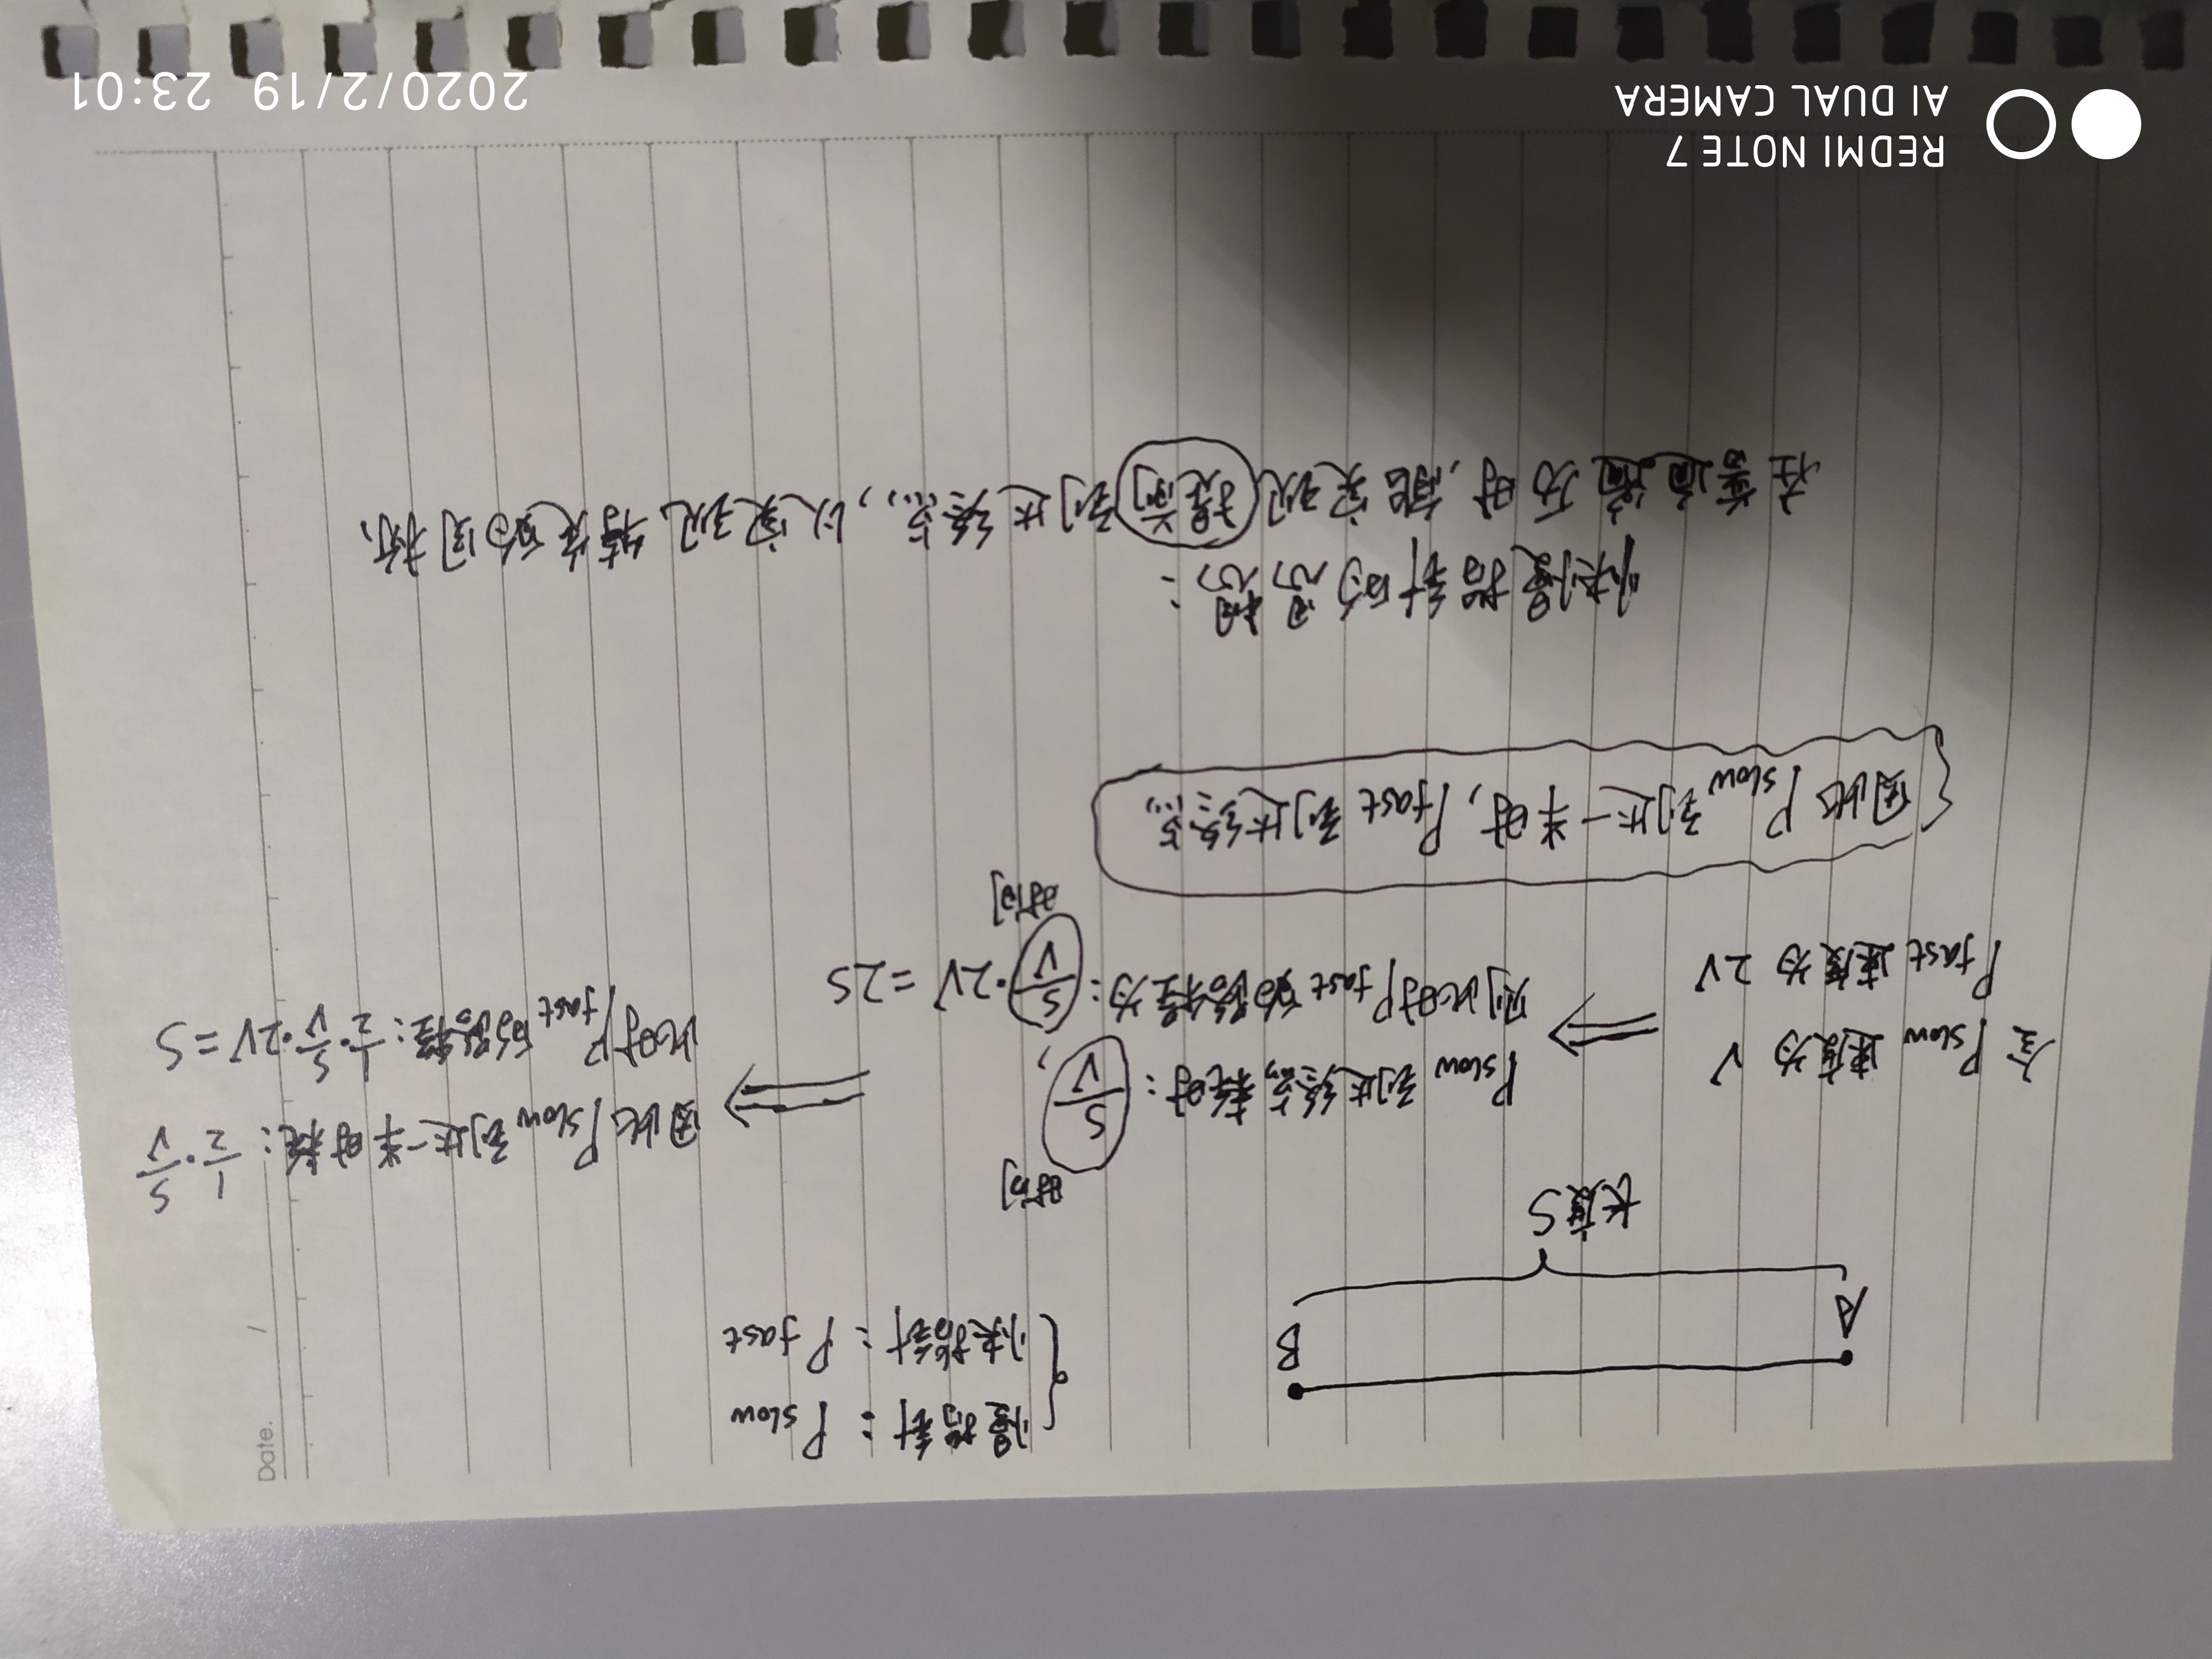 Date. /
慢指针：Pslow
快指针：Pfast
A
B
长度S
令 Pslow 速度为 V
Pfast 速度为 2V
时间
Pslow 到达终点耗时：S/V，
则此时Pfast 的路程为：S/V·2V=2S
时间
因此 Pslow 到达一半时耗：1/2·S/V
此时Pfast 的路程：1/2·S/V·2V=S
因此 Pslow 到达一半时，Pfast 到达终点
快慢指针的思想：
在普通遍历时，能实现提前到达终点，以实现特定的目标
REDMI NOTE 7
AI DUAL CAMERA
2020/2/19 23:01